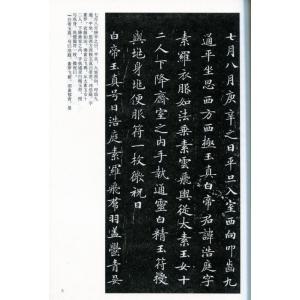 七月八月庚辛之日平旦入室西向叩齒九
通平坐思西方西極玉真白帝君諱浩庭字
素羅衣服如法乘素雲飛輿從太素玉女十
二人下降齋室之內手執通靈白精玉符授
與兆身兆便服符一枚微祝曰
白帝玉真号曰浩庭素羅飛翳羽盖欝青晏